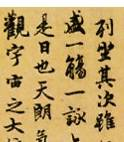 列坐其次雖
盛一觴一詠
是日也天朗氣
觀宇宙之大